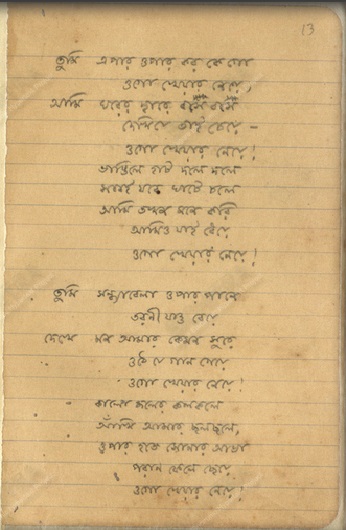 13
তুমি এপার ওপার কর কে গো
ওগো খেয়ার নেয়ে,
আমি ঘরের দ্বারে বসে বসে
দেখি যে তাই চেয়ে –
ওগো খেয়ার নেয়ে!
ভাঙিলে হাট দলে দলে
সবাই যবে ঘাটে চলে
আমি তখন মনে করি
আমিও যাই ধেয়ে
ওগো খেয়ার নেয়ে!
তুমি সন্ধ্যাবেলা ওপার পানে
তরণী যাও বেয়ে
দেখে মন আমার কেমন সুরে
ওঠে যে গান গেয়ে
ওগো খেয়ার নেয়ে!
কালো জলের কলকলে
আঁখি আমার ছলছলে,
ওপার হতে সোনার আভা
পরান ফেলে ছেয়ে
ওগো খেয়ার নেয়ে!